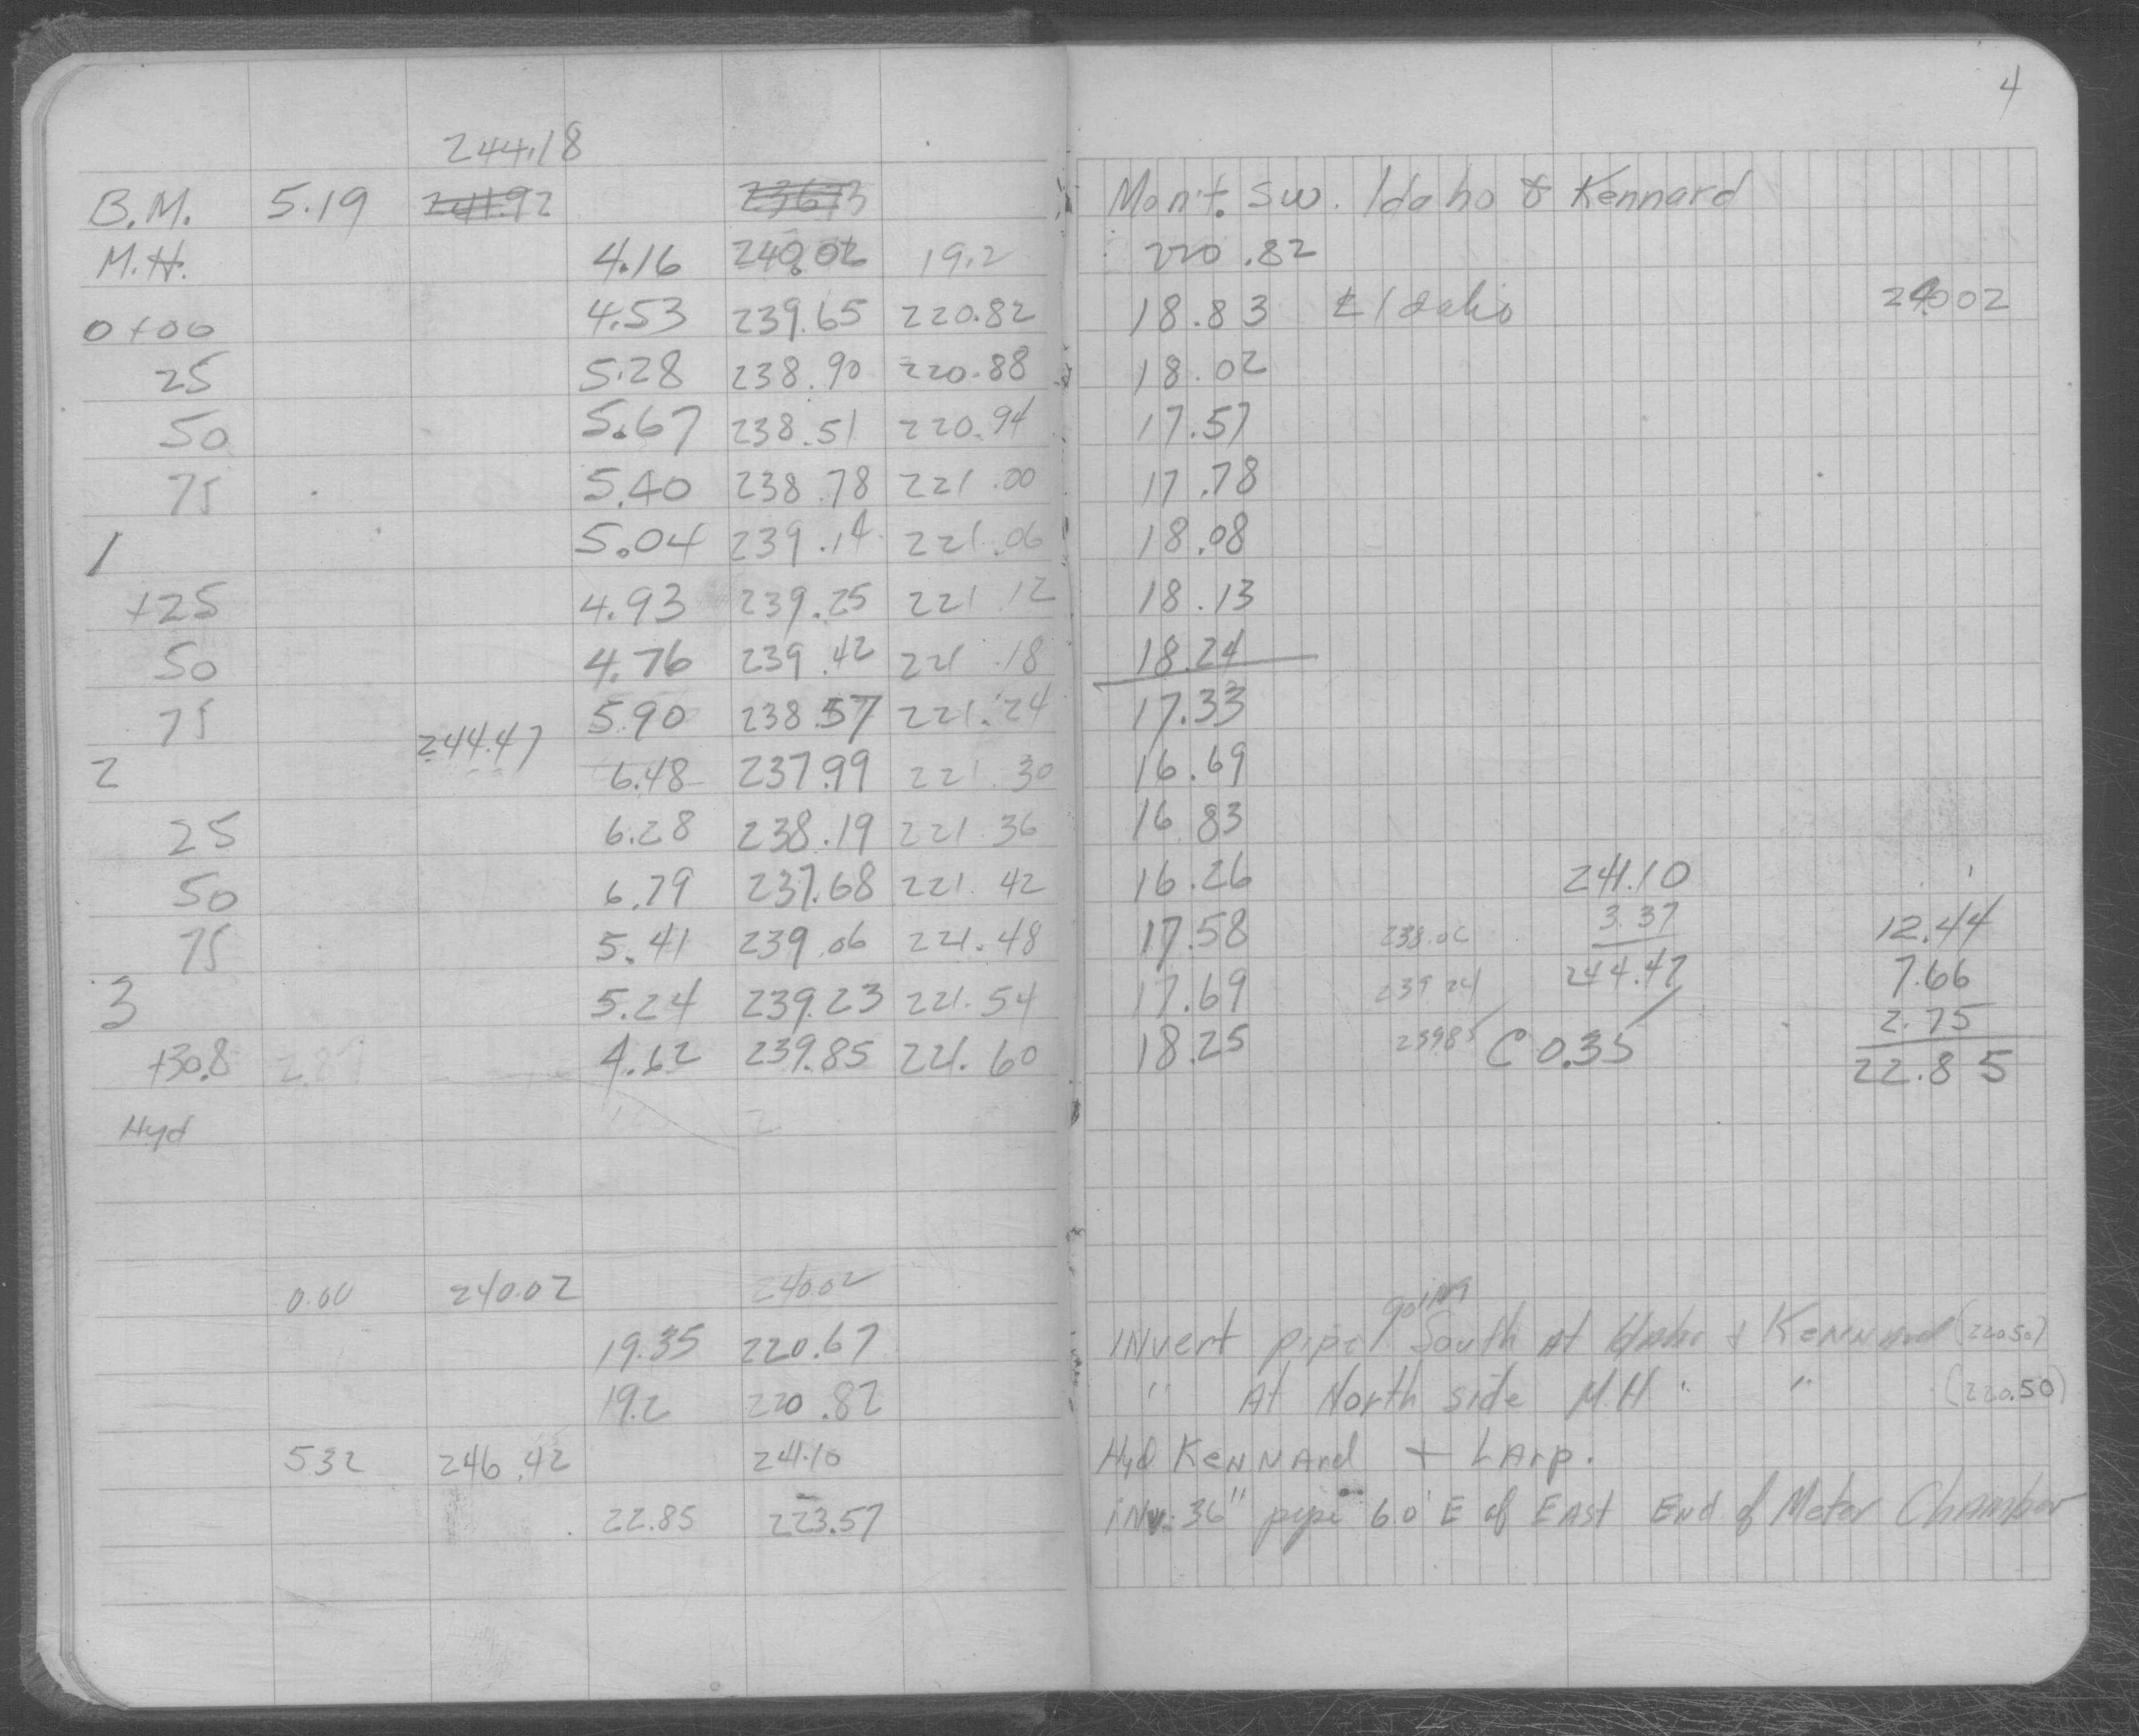 4
244.18
B.M. 5.19 241.92 236.73 Mon't. SW. Idaho & Kennard
M.H. 4.16 240.02 19.2 220.82
0+00 4.53 239.65 220.82 18.83 ℄ Idaho 240.02
25 5.28 238.90 220.88 18.02
50 5.67 238.51 220.94 17.57
75 5.40 238.78 221.00 17.78
1 5.04 239.14 221.06 18.08
+25 4.93 239.25 221.12 18.13
50 4.76 239.42 221.18 18.24
75 5.90 238.57 221.24 17.33
244.47
2 6.48 237.99 221.30 16.69
25 6.28 238.19 221.36 16.83
50 6.79 237.68 221.42 16.26 241.10
75 5.41 239.06 221.48 17.58 238.06 3.37 12.44
3 5.24 239.23 221.54 17.69 239.24 244.47 7.66
2.75
+30.8 2.87 4.62 239.85 221.60 18.25 239.85 C 0.35 22.85
Hyd
0.00 240.02 240.02
going
19.35 220.67 INvert pipe South At Idaho & KENNArd (220.50)
19.2 220.82 " At North side M.H " " (220.50)
5.32 246.42 241.10 Hyd KENNArd + LArp.
22.85 223.57 iNv. 36" pipe 6.0' E of EAst End of Meter Chamber